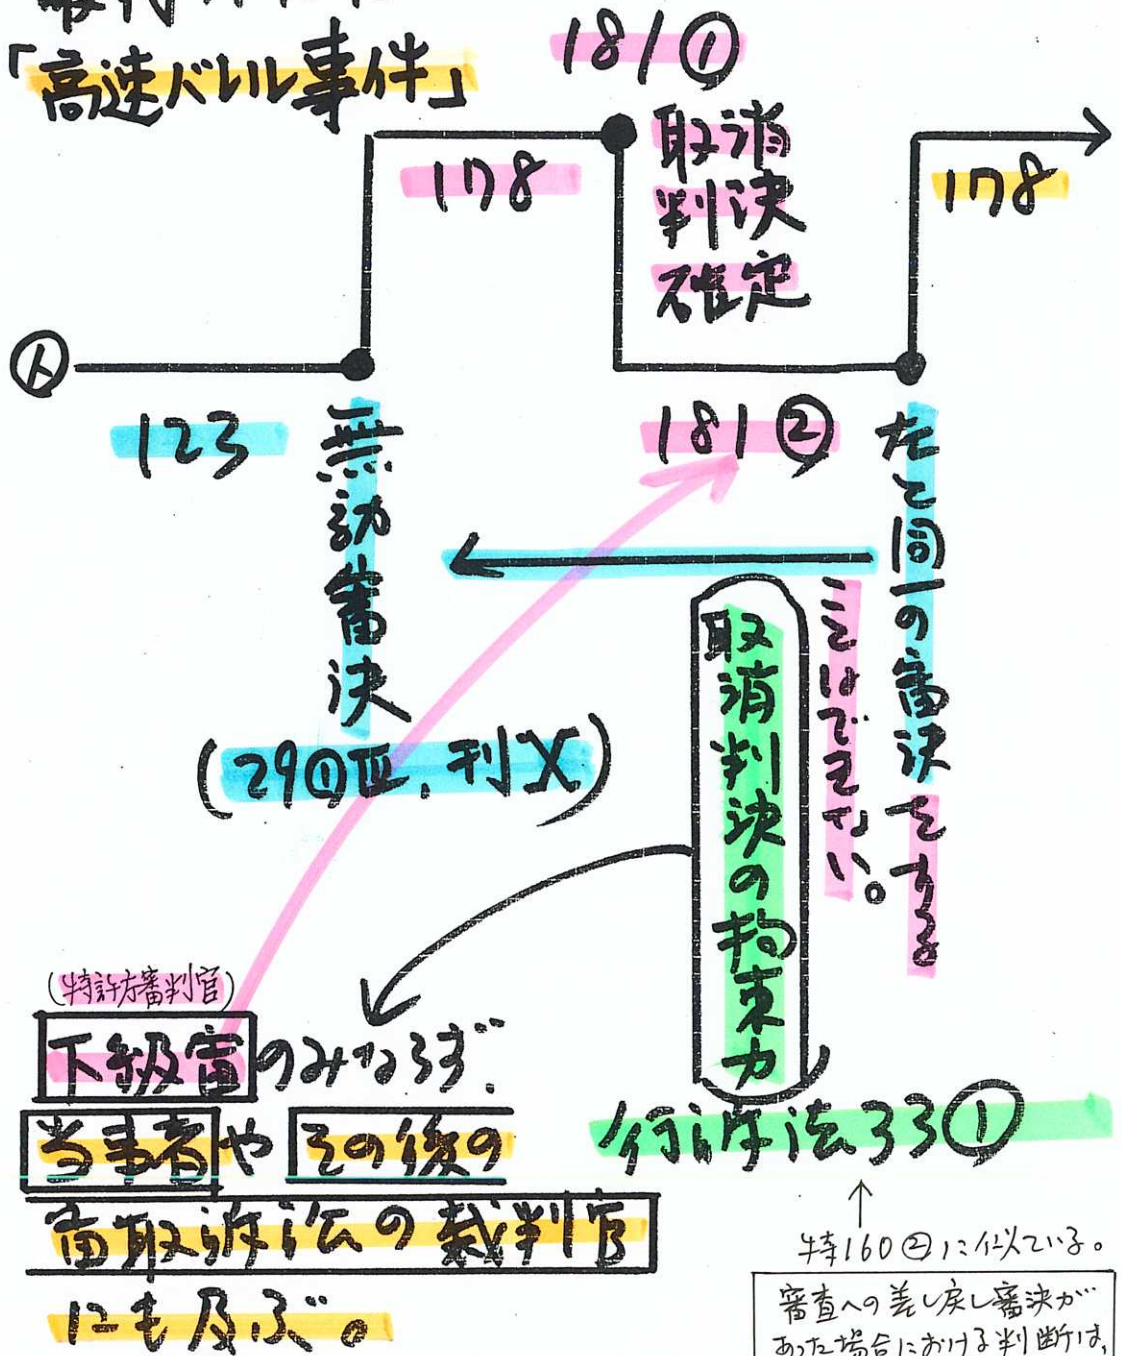 「高速バレル事件」
181①
取消
判決
確定
178
178
人
123
無効審決
(29①Ⅲ, 刊X)
181②
左と同一の審決をする
ことはできない。
取消判決の拘束力
行訴法33①
(特許庁審判官)
下級審のみならず、
当事者や その後の
審取訴訟の裁判官
にも及ぶ。
特160②に似ている。
審査への差し戻し審決が
あった場合における判断は、